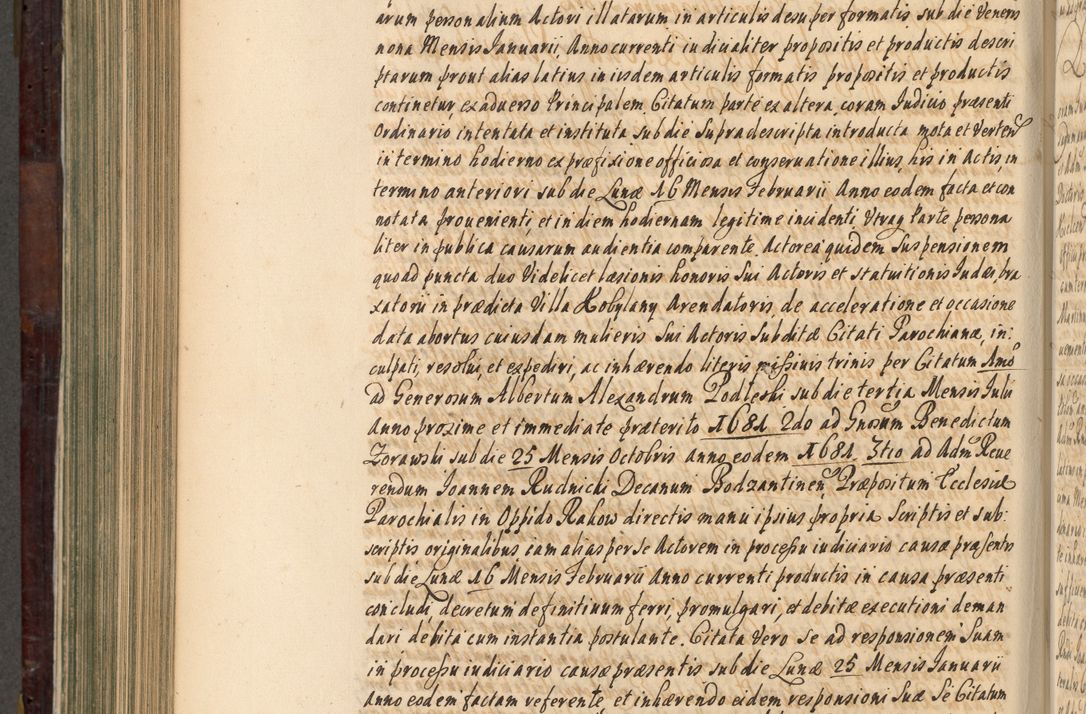 arum personalium Actori illatarum in articulis desuper formatis sub die Veneris
nona Mensis Januarii, Anno currenti iudicialiter propositis et productis descri
ptarum prout alias latius in iisdem articulis formatis propositis et productis
continetur, ex adverso Principalem Citatum parte ex altera, coram Judicio præsenti
Ordinario intentata et instituta sub die Supra descripta introducta mota et Verten
in termino hodierno ex præfixione officiosa et conservatione illius, his in Actis, in
termino anteriori sub die Lunæ 16 Mensis Februarii Anno eodem facta et con
notata provenienti, et in diem hodiernam legitime incidenti Utraq Parte persona
liter in publica causarum audientia comparente. Actorea quidem Suspensionem
quoad puncta duo Videlicet læsionis honoris Sui Actoris et statuitionis Judæi, bra
xatorii in prædicta Villa Kobylany Arendatoris, de acceleratione et occasione
data abortus cuiusdam mulieris Sui Actoris Subditæ Citati Parochianæ, in:
culpati, resolvi, et expediri, ac inhærendo literis missivis trinis per Citatum Amo
ad Generosum Albertum Alexandrum Podleski sub die tertia Mensis Julii
Anno proxime et immediate præterito 1681 2do ad Gnosum Benedictum
Zorawski sub die 25 Mensis Octobris anno eodem 1681 3tio ad Adm Reve
rendum Joannem Rudnicki Decanum Bodzantinen Præpositum Ecclesiæ
Parochialis in Oppido Rakow directis manu ipsius propria Scriptis et sub:
scriptis originalibus iam alias per se Actorem in processu iudiciario causæ præsentis
sub die Lunæ 16 Mensis Februarii Anno currenti productis in causa præsenti
concludi, decretum definitivum ferri, promulgari, et debitæ executioni deman
dari debita cum instantia postulante. Citata Vero se ad responsionem Suam
in processu iudiciario causæ præsentis sub die Lunæ 25 Mensis Januarii
Anno eodem factam referente, et inhærendo eidem responsioni Suæ Se Citatum